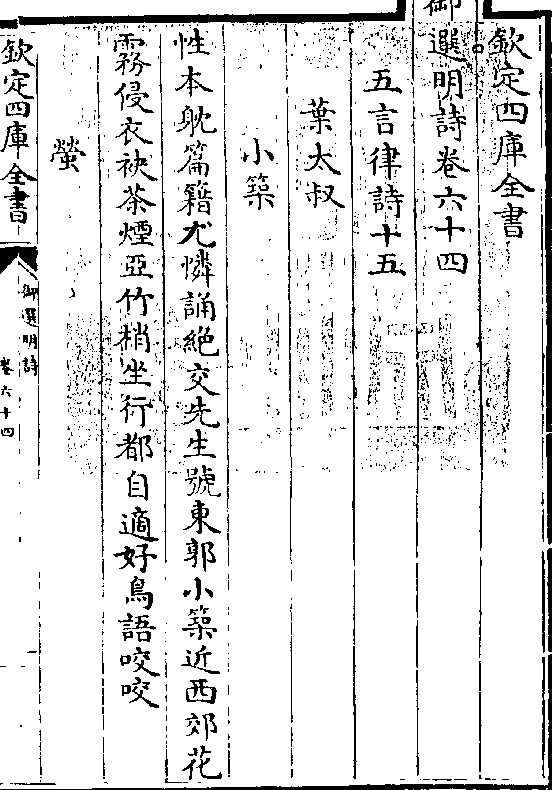 欽定四庫全書
御選明詩卷六十四
五言律詩十五
葉太叔
小築
性本躭篇籍尤憐誦絶交先生號東郭小築近西郊花
霧侵衣袂茶煙亞竹梢坐行都自適好鳥語咬咬
螢
欽定四庫全書
御選明詩
卷六十四